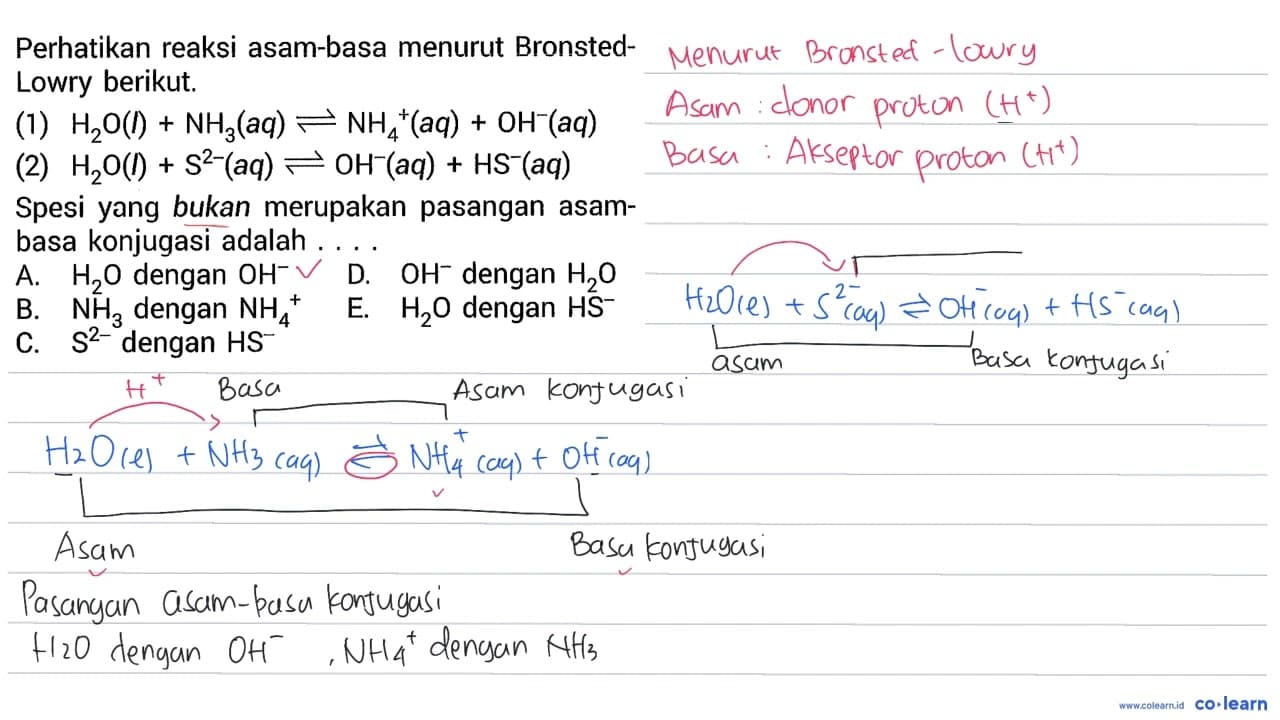 Perhatikan reaksi asam-basa menurut Bronsted-
Lowry berikut.
(1) H₂O(l) + NH₃(aq) ⇌ NH₄⁺(aq) + OH⁻(aq)
(2) H₂O(l) + S²⁻(aq) ⇌ OH⁻(aq) + HS⁻(aq)
Spesi yang bukan merupakan pasangan asam-
basa konjugasi adalah . . . .
A. H₂O dengan OH⁻ ✓ D. OH⁻ dengan H₂O
B. NH₃ dengan NH₄⁺ E. H₂O dengan HS⁻
C. S²⁻ dengan HS⁻
Menurut Bronsted-lowry
Asam : donor proton (H⁺)
Basa : Akseptor proton (H⁺)
H₂O(l) + S²⁻(aq) ⇌ OH⁻(aq) + HS⁻(aq)
asam Basa konjugasi
H⁺ Basa Asam konjugasi
H₂O(l) + NH₃(aq) ⇌ NH₄⁺(aq) + OH⁻(aq)
Asam Basa konjugasi
Pasangan asam-basa konjugasi
H₂O dengan OH⁻ , NH₄⁺ dengan NH₃
www.colearn.id co·learn